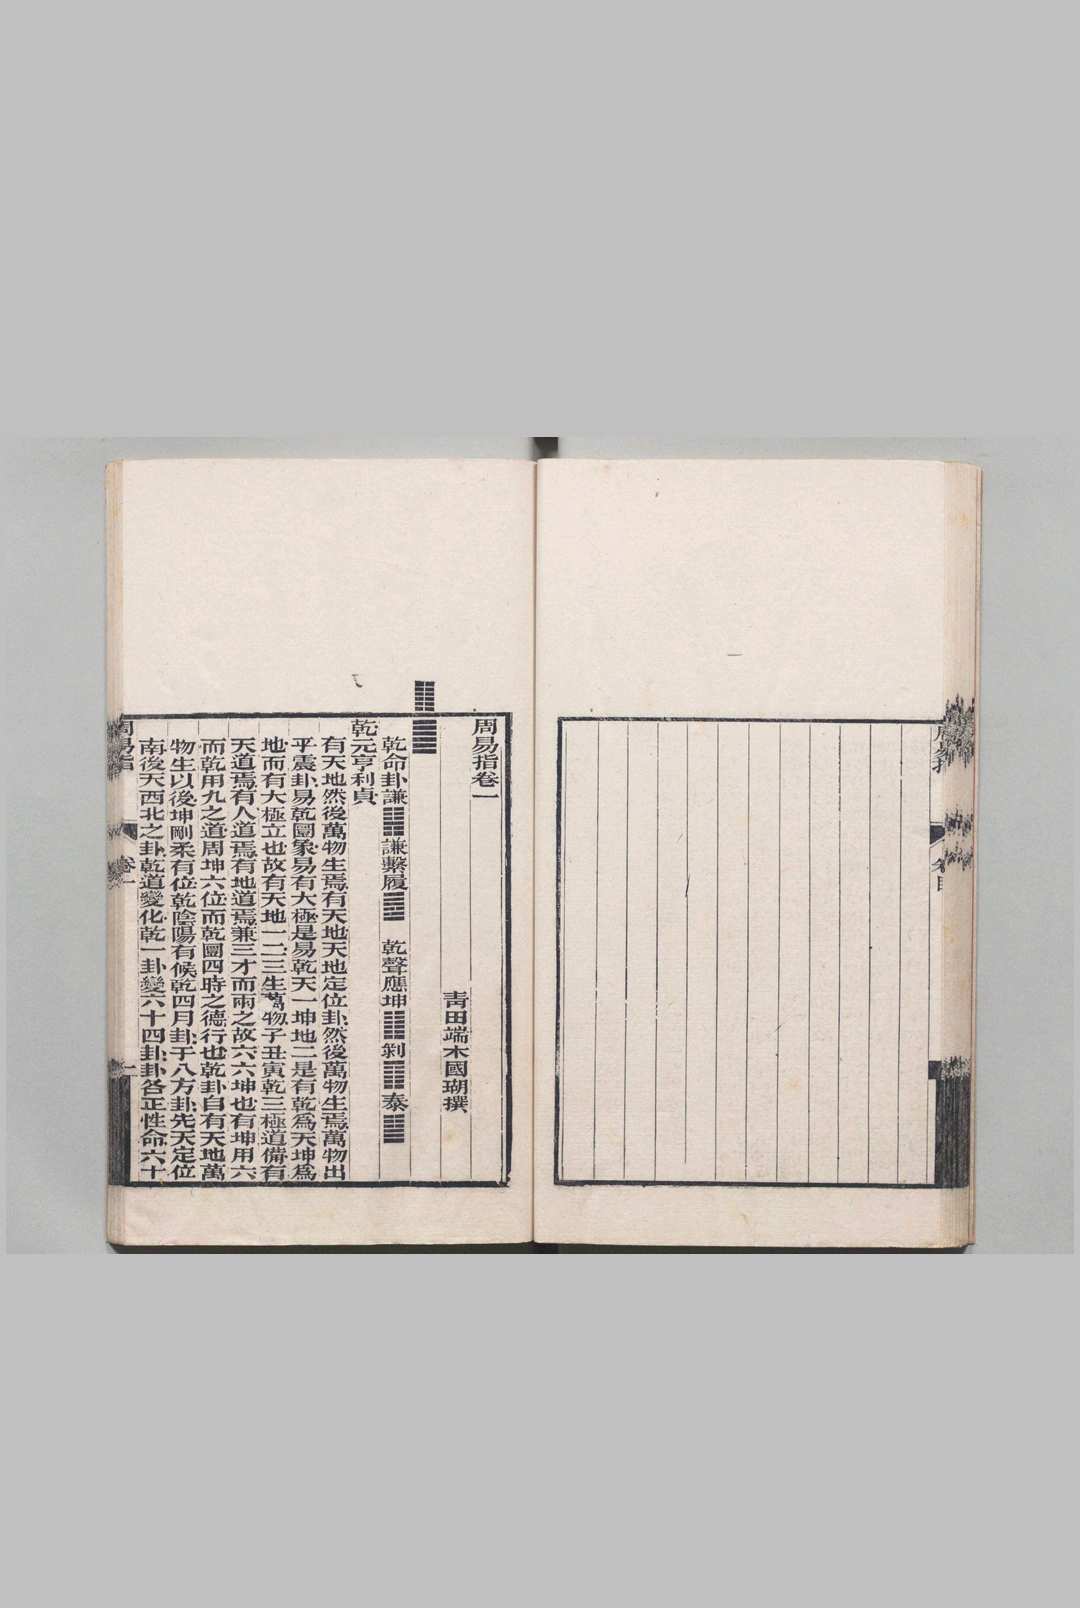 周易指卷一
青田端木國瑚撰
䷀
乾命卦謙䷎謙繫履䷉ 乾聲應坤䷁剝䷖泰䷊
乾元亨利貞
有天地然後萬物生焉有天地天地定位卦然後萬物生焉萬物出
乎震卦易乾圜象易有大極是易乾天一坤地二是有乾為天坤為
地而有大極立也故有天地一二三生萬物子丑寅乾三極道備有
天道焉有人道焉有地道焉兼三才而兩之故六六坤也有坤用六
而乾用九之道周坤六位而乾圜四時之德行也乾卦自有天地萬
物生以後坤剛柔有位乾陰陽有候乾四月卦于八方卦先天定位
南後天西北之卦乾道變化乾一卦變六十四卦卦各正性命六十
周易指
卷一
一
周易指